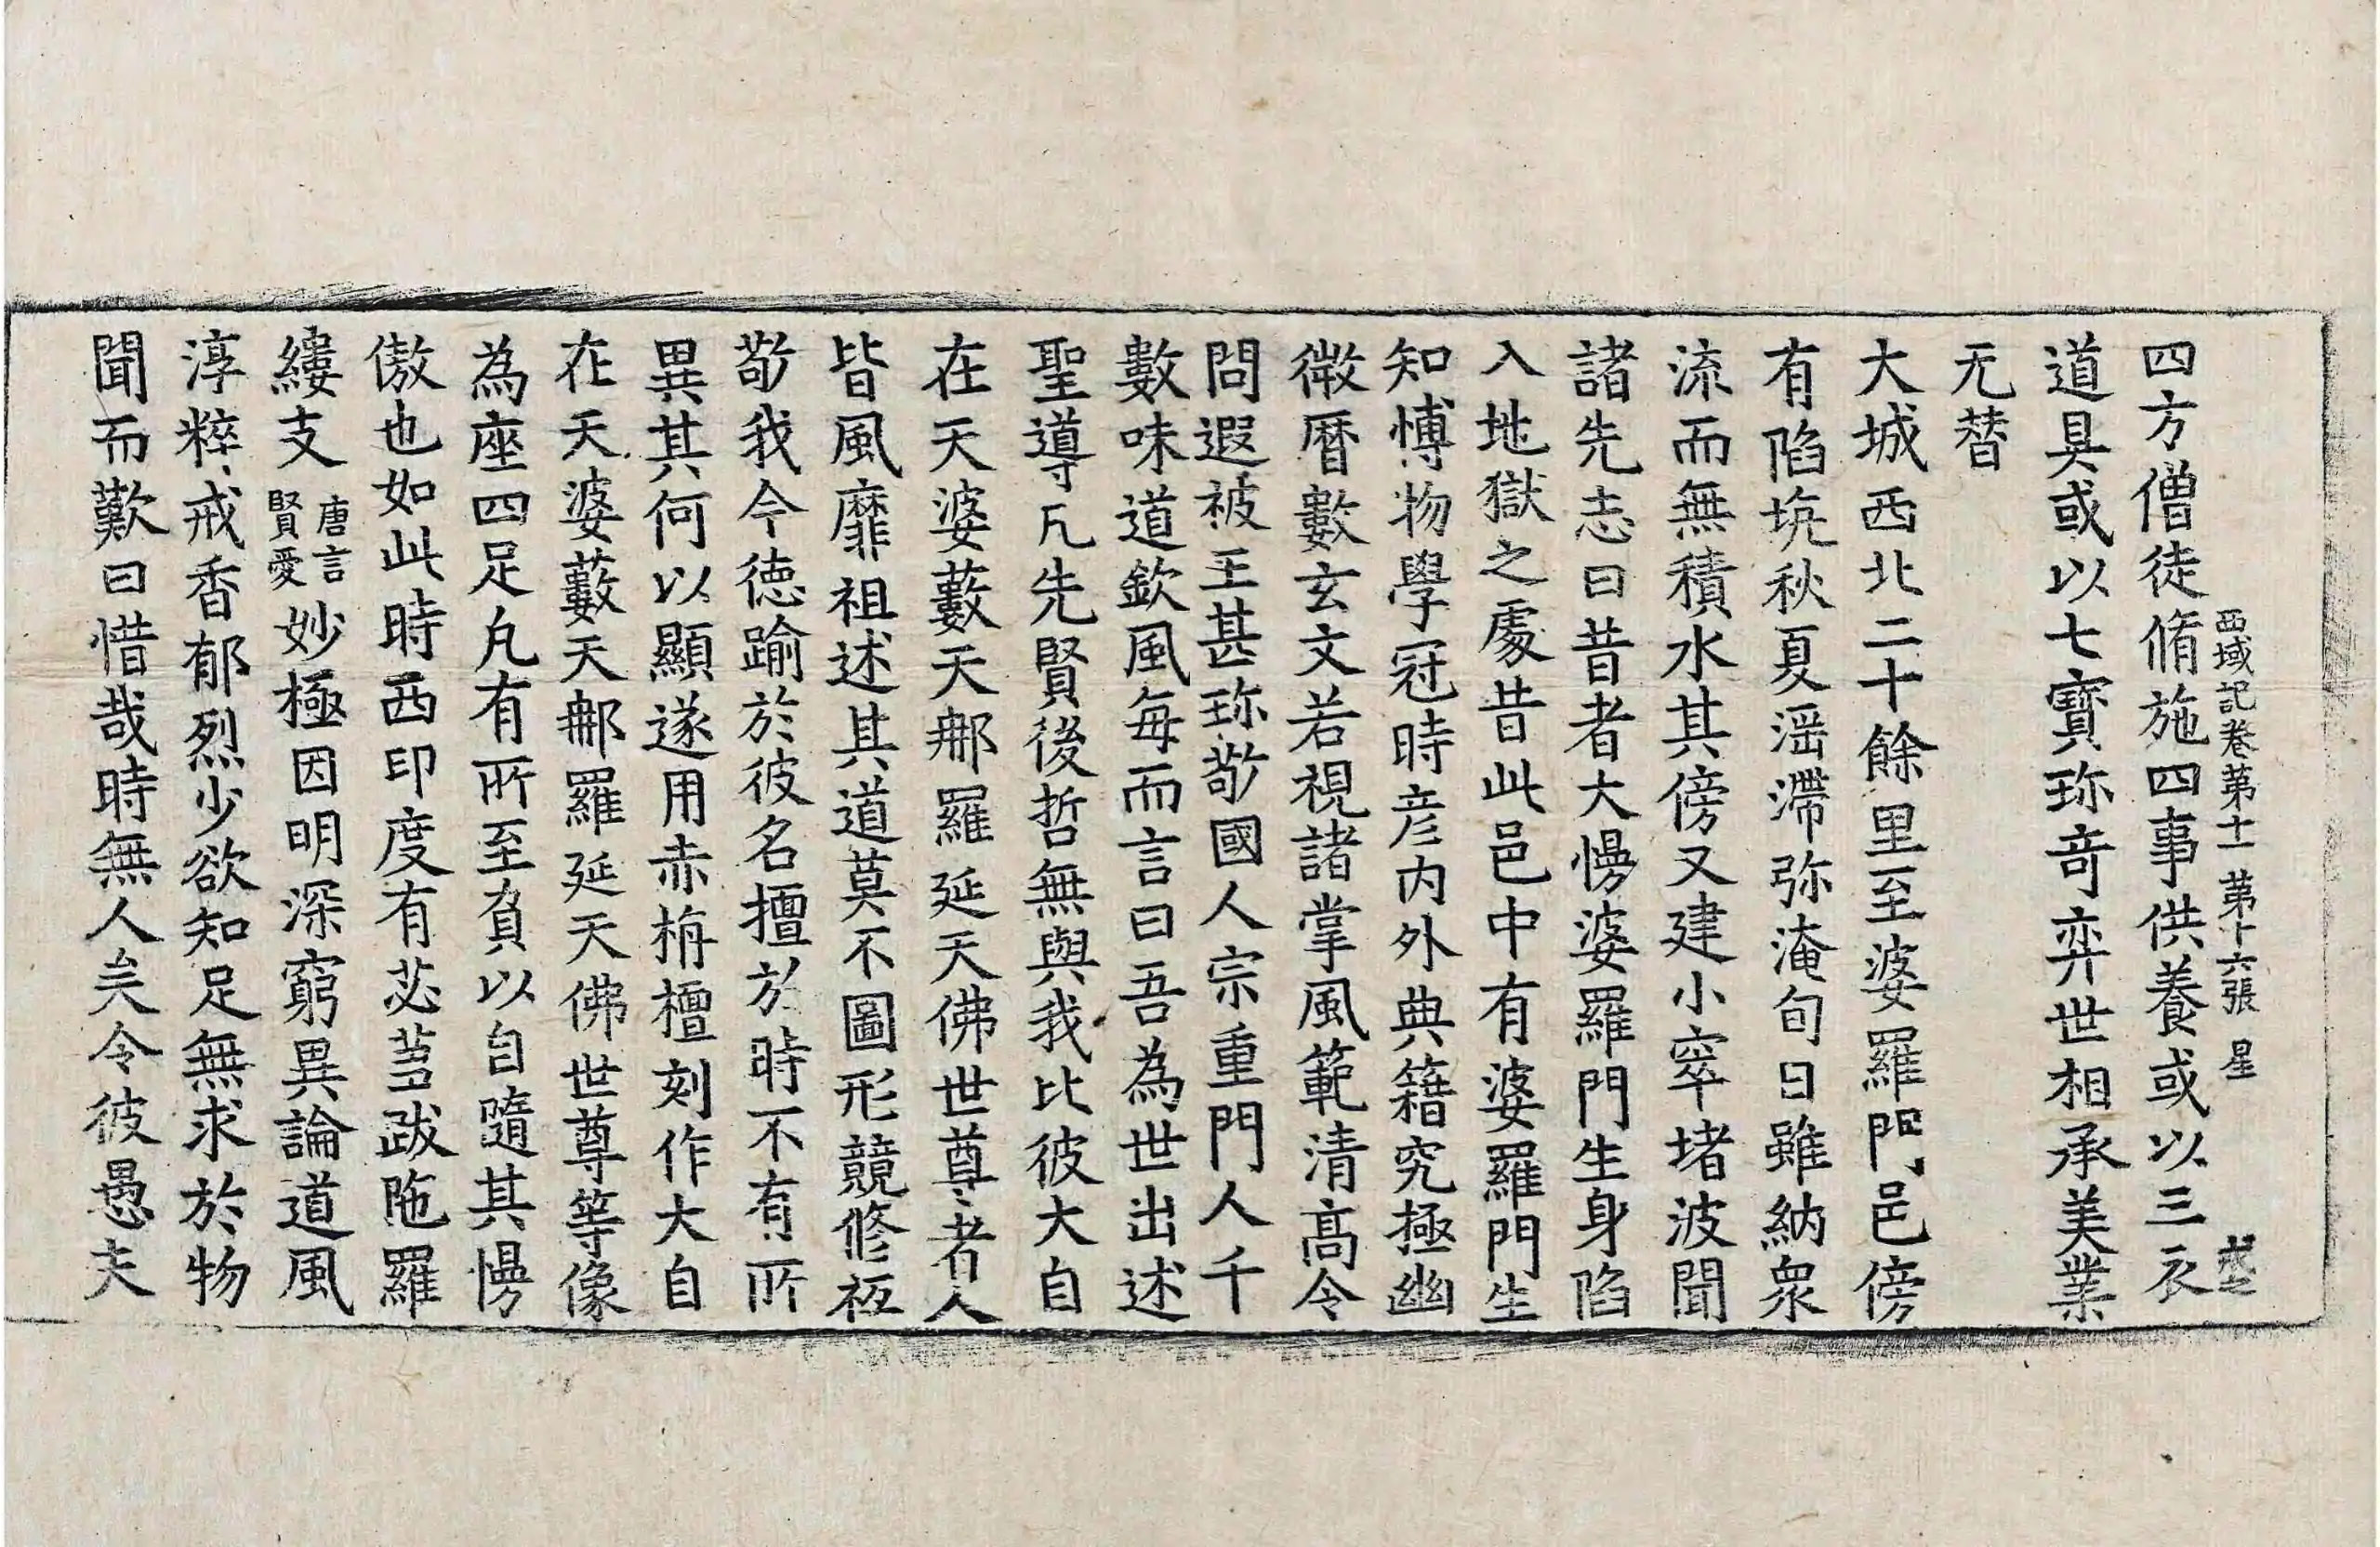 西域記卷第十一 第十六張 星
四方僧徒脩施四事供養或以三衣
道具或以七寶珎竒弈世相承美業
无替
大城西北二十餘里至婆羅門邑傍
有陷坑秋夏滛滯弥淹旬日雖納衆
流而無積水其傍又建小窣堵波聞
諸先志曰昔者大慢婆羅門生身陷
入地獄之處昔此邑中有婆羅門生
知博物學冠時彦内外典籍究極幽
微曆數玄文若視諸掌風範清高令
問遐被王甚珎敬國人宗重門人千
數味道欽風每而言曰吾為世出述
聖導凡先賢後哲無與我比彼大自
在天婆藪天那羅延天佛世尊者人
皆風靡祖述其道莫不圖形競修祇
敬我今德踰於彼名擅於時不有所
異其何以顯遂用赤栴檀刻作大自
在天婆藪天那羅延天佛世尊等像
為座四足凡有所至負以自隨其慢
傲也如此時西印度有苾蒭跋陁羅
縷支唐言賢愛妙極因明深窮異論道風
淳粹戒香郁烈少欲知足無求於物
聞而歎曰惜哉時無人矣令彼愚夫